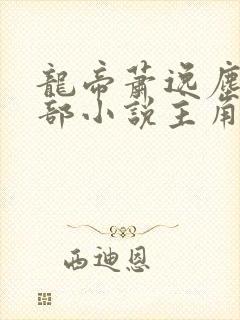 龍帝蕭逸塵
部小說主角
西迪恩